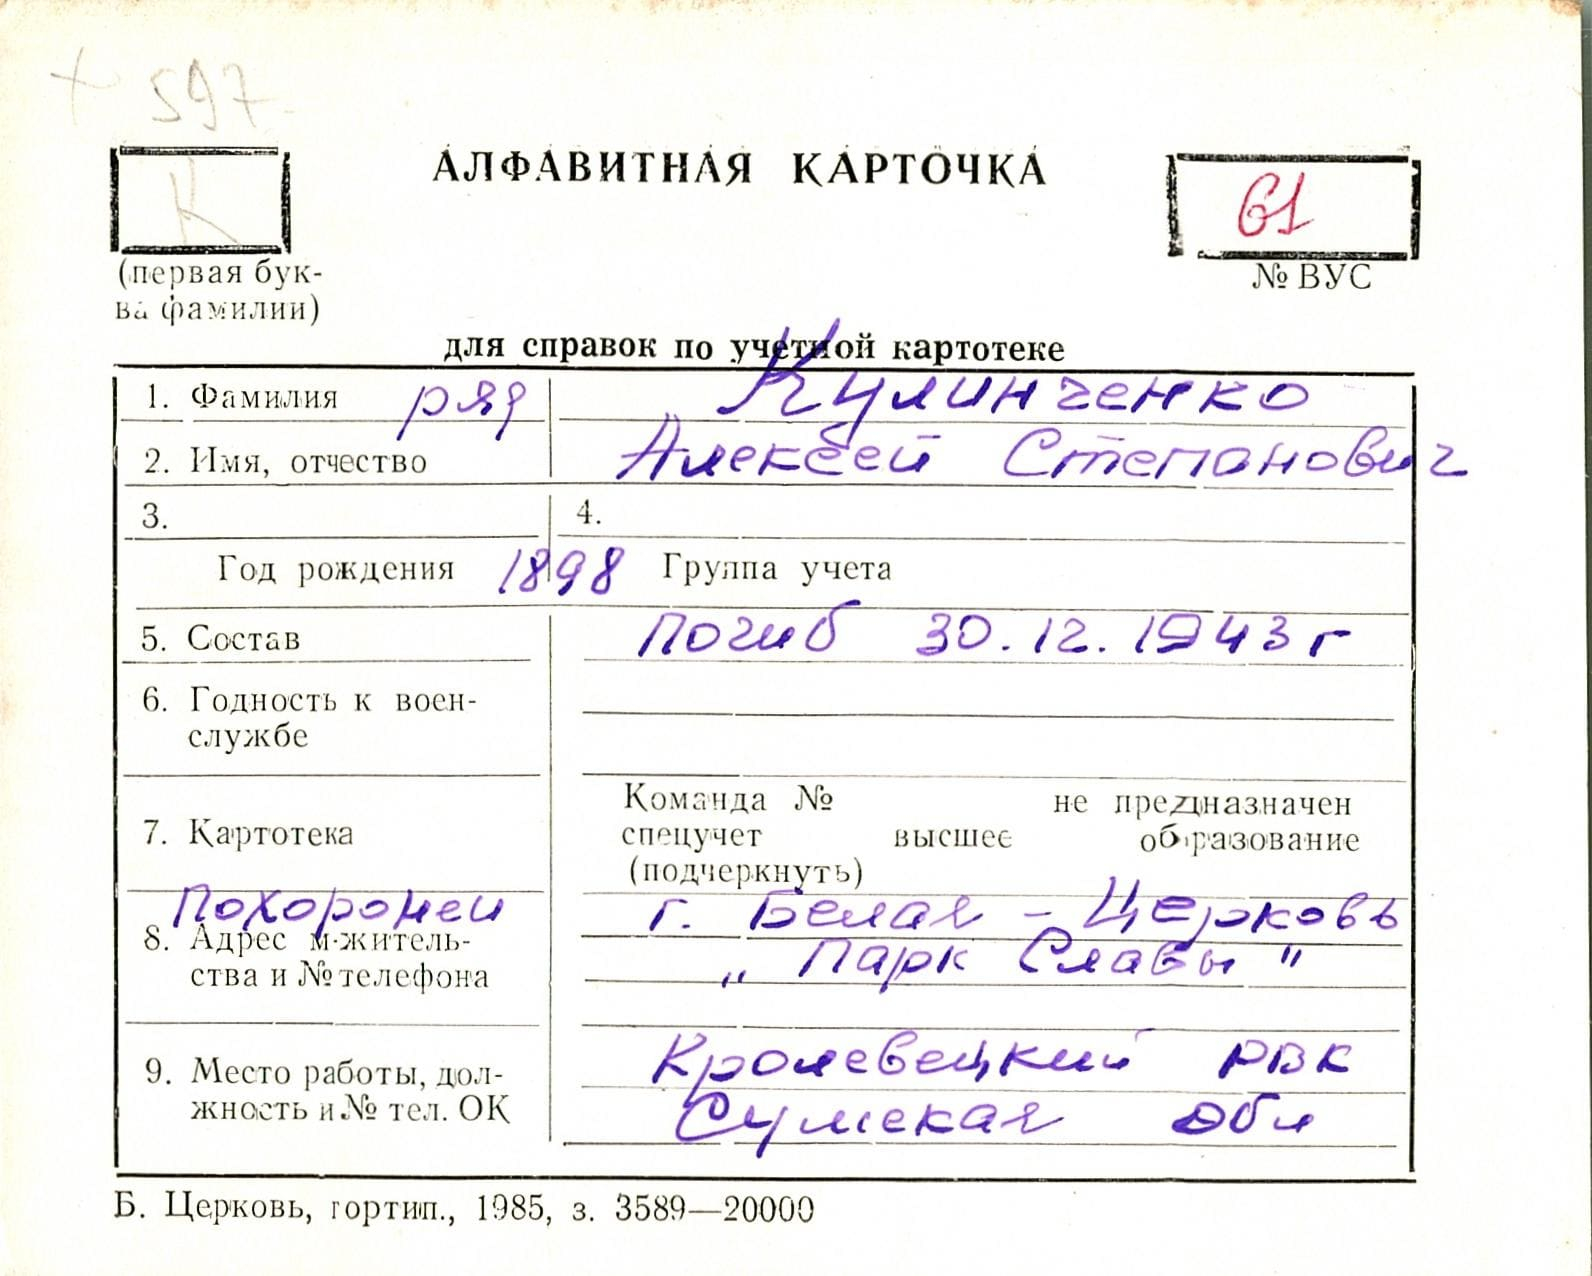 + 597
К
АЛФАВИТНАЯ КАРТОЧКА
61
(первая бук-
ва фамилии)
№ ВУС
для справок по учетной картотеке
1. Фамилия ряд Кулинченко
2. Имя, отчество Алексей Степанович
3. 4.
Год рождения 1898 Группа учета
5. Состав Погиб 30.12.1943 г
6. Годность к воен-
службе
Команда № не предназначен
7. Картотека спецучет высшее образование
(подчеркнуть)
Похоронен г. Белая - Церковь
8. Адрес м-житель-
ства и № телефона „Парк Славы"
9. Место работы, дол- Кролевецкий РВК
жность и № тел. ОК Сумская обл
Б. Церковь, гортип., 1985, з. 3589—20000